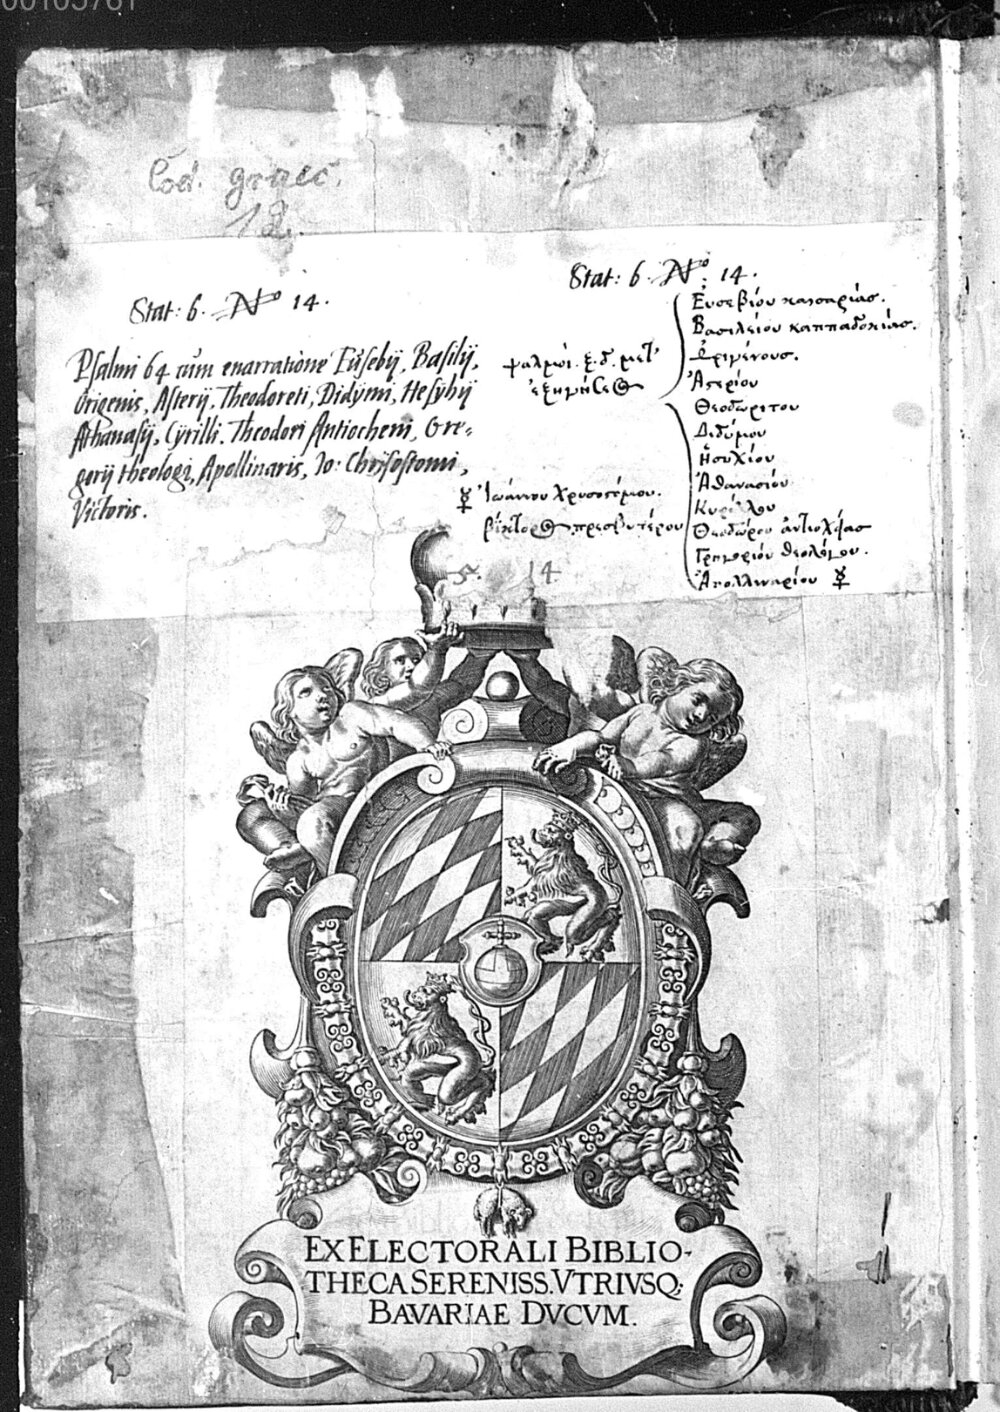 00105761
Cod. graec.
12.
Stat: 6. No 14.
Psalmi 64 cum enarratione Eusebij, Basilij,
Origenis, Asterij, Theodoreti, Didymi, Hesychij
Athanasij, Cyrilli, Theodori Antiocheni, Gre=
gorij theologi, Apollinaris, Jo: Chrisostomi,
Victoris.
Stat: 6. No: 14.
ψαλμοὶ. ξ.δ. μετ'
ἐξηγήσεως
Ευσεβίου καισαρίας.
Βασιλείου καππαδοκίας.
Ὠριγένους.
Ἀστερίου
Θεοδωρίτου
Διδύμου
Ἡσυχίου
Ἀθανασίου
Κυρίλλου
Θεοδώρου ἀντιοχείας
Γρηγορίου θεολόγου.
Ἀπολλιναρίου ☿
☿ Ἰωάννου Χρυσοστόμου.
βίκτορος πρεσβυτέρου
5. 14
EX ELECTORALI BIBLIO-
THECA SERENISS. VTRIVSQ;
BAVARIAE DVCVM.